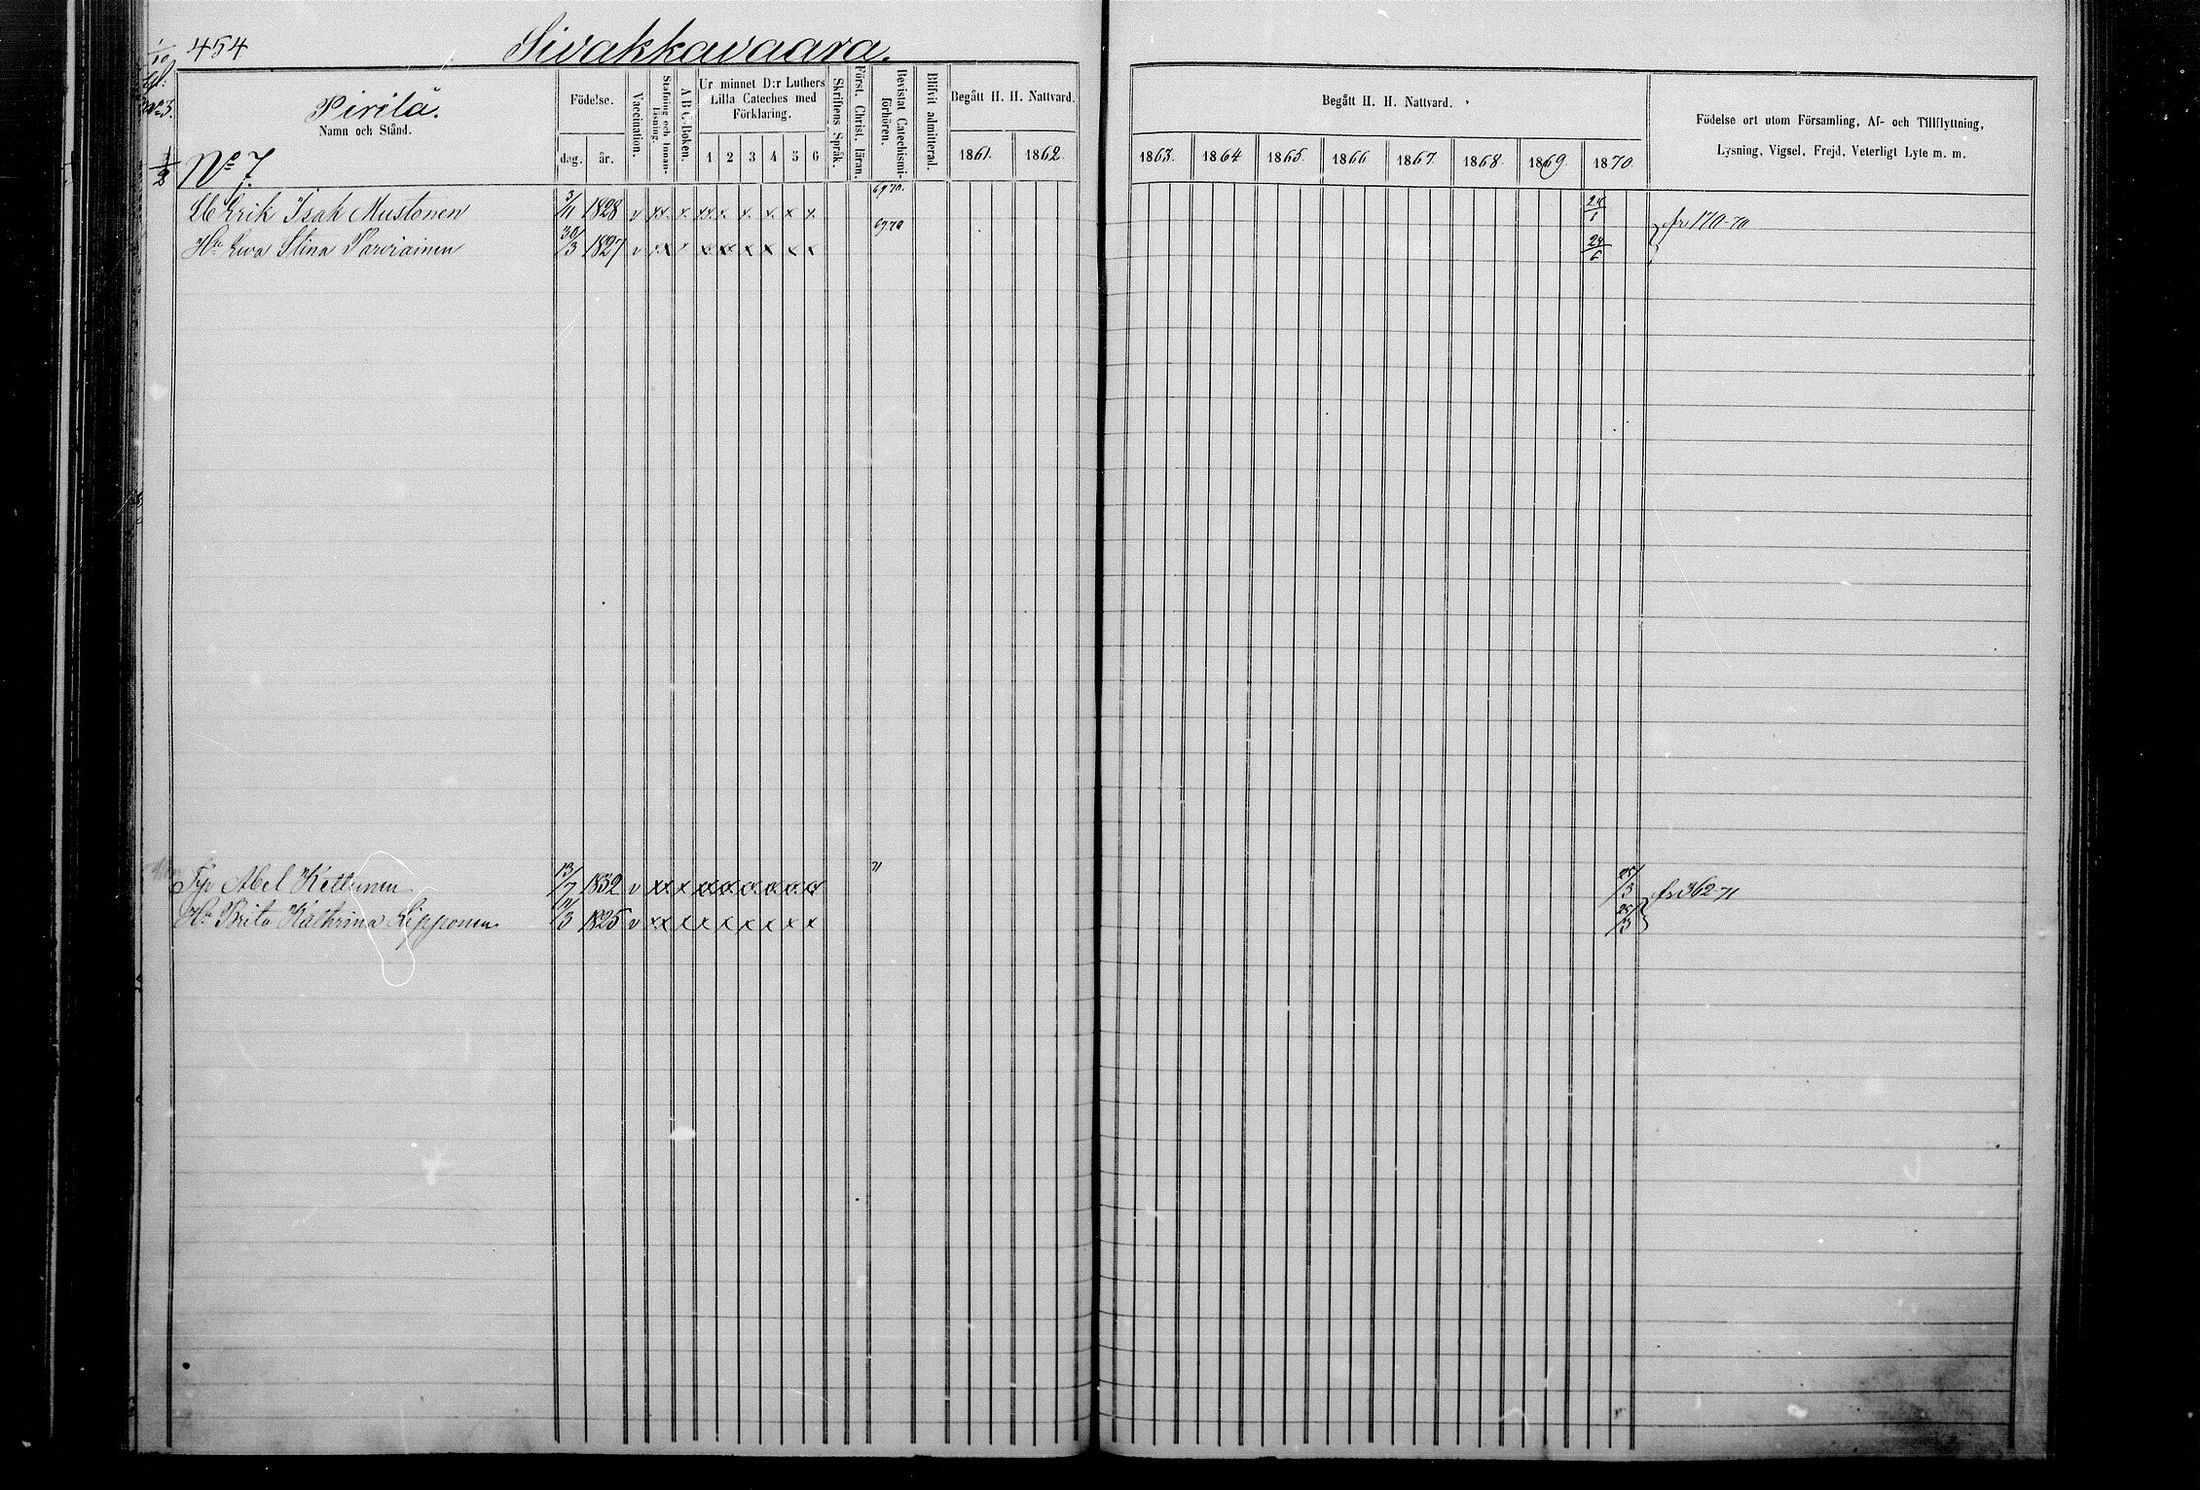 454 Sivakkavaara.
Pirilä.
Namn och Stånd.
Nº 7.
Födelse.
dag. år.
Vaccination.
Stafning och Innanläsning.
A B C-Boken.
Ur minnet D:r Luthers Lilla Cateches med Förklaring.
1 2 3 4 5 6
Skriftens Språk.
Först. Christ. läran.
Bevistat Catechismi-förhören.
Blifvit admitterad.
Begått H. H. Nattvard.
1861. 1862.
Begått H. H. Nattvard.
1863. 1864 1865. 1866 1867. 1868. 1869. 1870.
Födelse ort utom Församling, Af- och Tillflyttning,
Lysning, Vigsel, Frejd, Veterligt Lyte m. m.
Erik Isak Mustonen 3/11 1828 v xx x xx x x x x x 69 70. 24/1 fr 170-70
Hu Eva Stina Parviainen 30/3 1827 v x x x x x x x x 69 70 24/6
Abel Kettunen 13/7 1832 v xx x x x x x x x 71 25/3 fr 362-71
Hu Brita Kathrina Lipponen /3 1825 v xx x x x x x x x 25/3